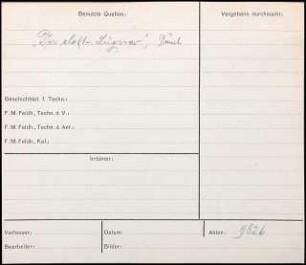 Benutzte Quellen:
Vergebens durchsucht:
Geschichtsbl. f. Techn.:
F. M. Feldh., Techn. d. V.:
F. M. Feldh., Techn. d. Ant.:
F. M. Feldh., Kal.:
Irrtümer:
Verfasser:
Datum:
Akten: 9826
Bearbeiter:
Bilder: